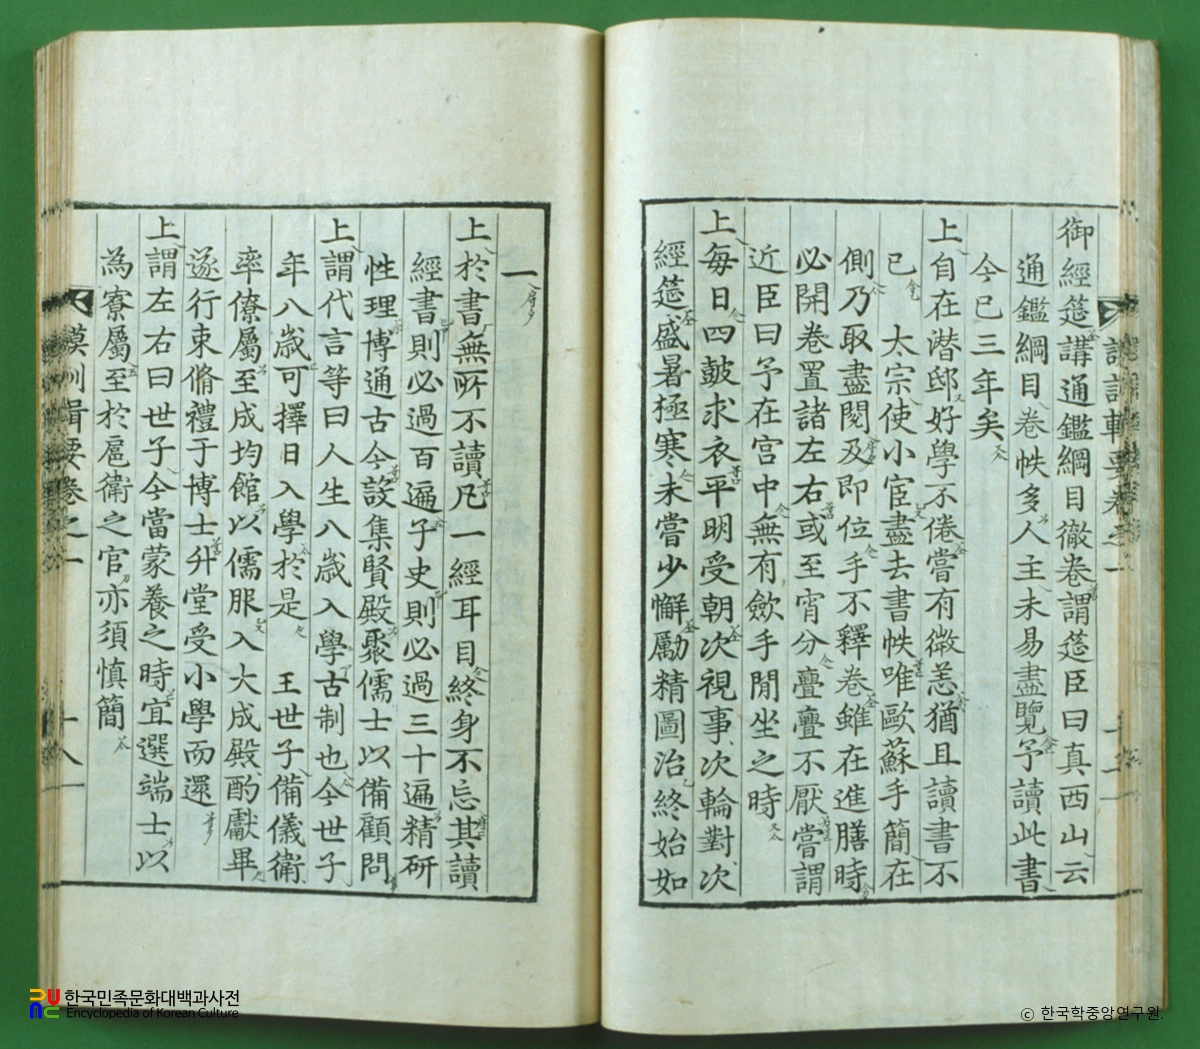 御經筵講通鑑綱目徹卷謂筵臣曰真西山云
通鑑綱目卷帙多人主未易盡覽予讀此書
今已三年矣
上自在潛邸好學不倦嘗有微恙猶且讀書不
已 太宗使小宦盡去書帙唯歐蘇手簡在
側乃取盡閱及即位手不釋卷雖在進膳時
必開卷置諸左右或至宵分亹亹不厭嘗謂
近臣曰予在宮中無有斂手閒坐之時
上每日四皷求衣平明受朝次視事次輪對次
經筵盛暑極寒未嘗少懈勵精圖治終始如
一
上於書無所不讀凡一經耳目終身不忘其讀
經書則必過百遍子史則必過三十遍精研
性理博通古今設集賢殿聚儒士以備顧問
上謂代言等曰人生八歲入學古制也今世子
年八歲可擇日入學於是 王世子備儀衛
率僚屬至成均館以儒服入大成殿酌獻畢
遂行束脩禮于博士升堂受小學而還
上謂左右曰世子今當蒙養之時宜選端士以
為寮屬至於扈衛之官亦須慎簡
謨訓輯要卷之一 十八
한국민족문화대백과사전
Encyclopedia of Korean Culture
© 한국학중앙연구원.